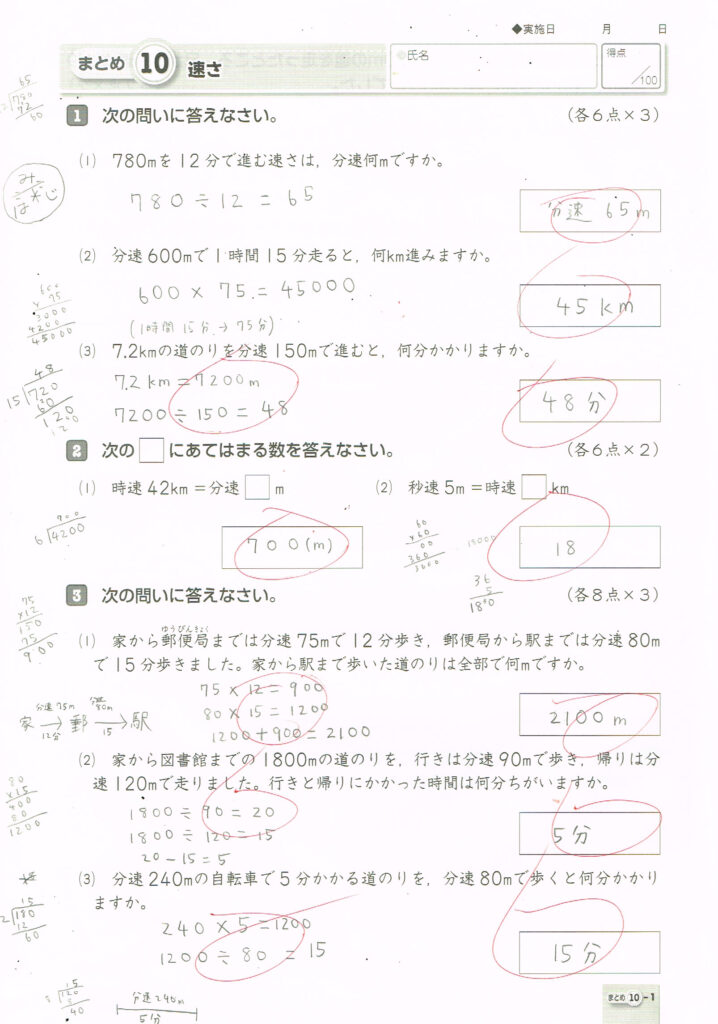 ◆実施日 月 日
まとめ 10 速さ
氏名
得点
/100
1 次の問いに答えなさい。 (各6点×3)
65
780
72
60
(1) 780mを12分で進む速さは，分速何mですか。
780÷12=65
分速 65m
(2) 分速600mで1時間15分走ると，何km進みますか。
600×75=45000
(1時間15分→75分)
45km
600
×75
3000
4200
45000
(3) 7.2kmの道のりを分速150mで進むと，何分かかりますか。
7.2km=7200m
7200÷150=48
48分
48
15 720
60
120
120
2 次の□にあてはまる数を答えなさい。 (各6点×2)
(1) 時速42km=分速□m
700(m)
900
6 4200
(2) 秒速5m=時速□km
18
60
×60
00
360
3600
18000
36
5
180
3 次の問いに答えなさい。 (各8点×3)
75
×12
150
75
900
(1) 家から郵便局までは分速75mで12分歩き，郵便局から駅までは分速80m
ゆうびんきょく
で15分歩きました。家から駅まで歩いた道のりは全部で何mですか。
75×12=900
80×15=1200
1200+900=2100
2100m
分速75m 分速80m
家→郵→駅
12分 15
(2) 家から図書館までの1800mの道のりを，行きは分速90mで歩き，帰りは分
速120mで走りました。行きと帰りにかかった時間は何分ちがいますか。
1800÷90=20
1800÷120=15
20-15=5
5分
80
×15
400
80
1200
(3) 分速240mの自転車で5分かかる道のりを，分速80mで歩くと何分かかり
ますか。
240×5=1200
1200÷80=15
15分
15
180
12
60
15
120
40
分速240m
5分
まとめ 10-1